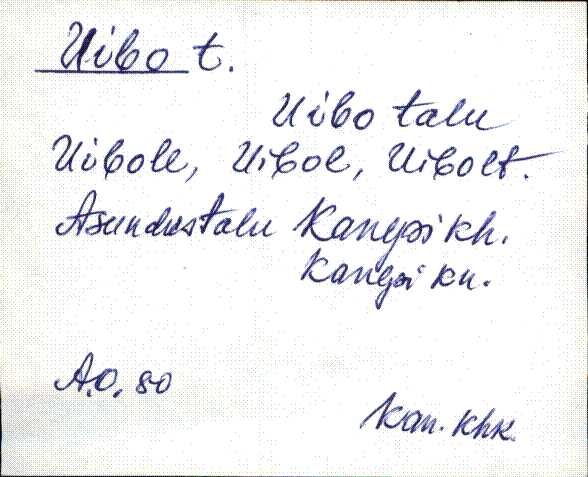 Uibo t.
Uibo talu
Uibole, Uibol, Uibolt.
Asundustalu Kangsi kh.
Kangsi kn.
A.O. 80
Kan. Khk.